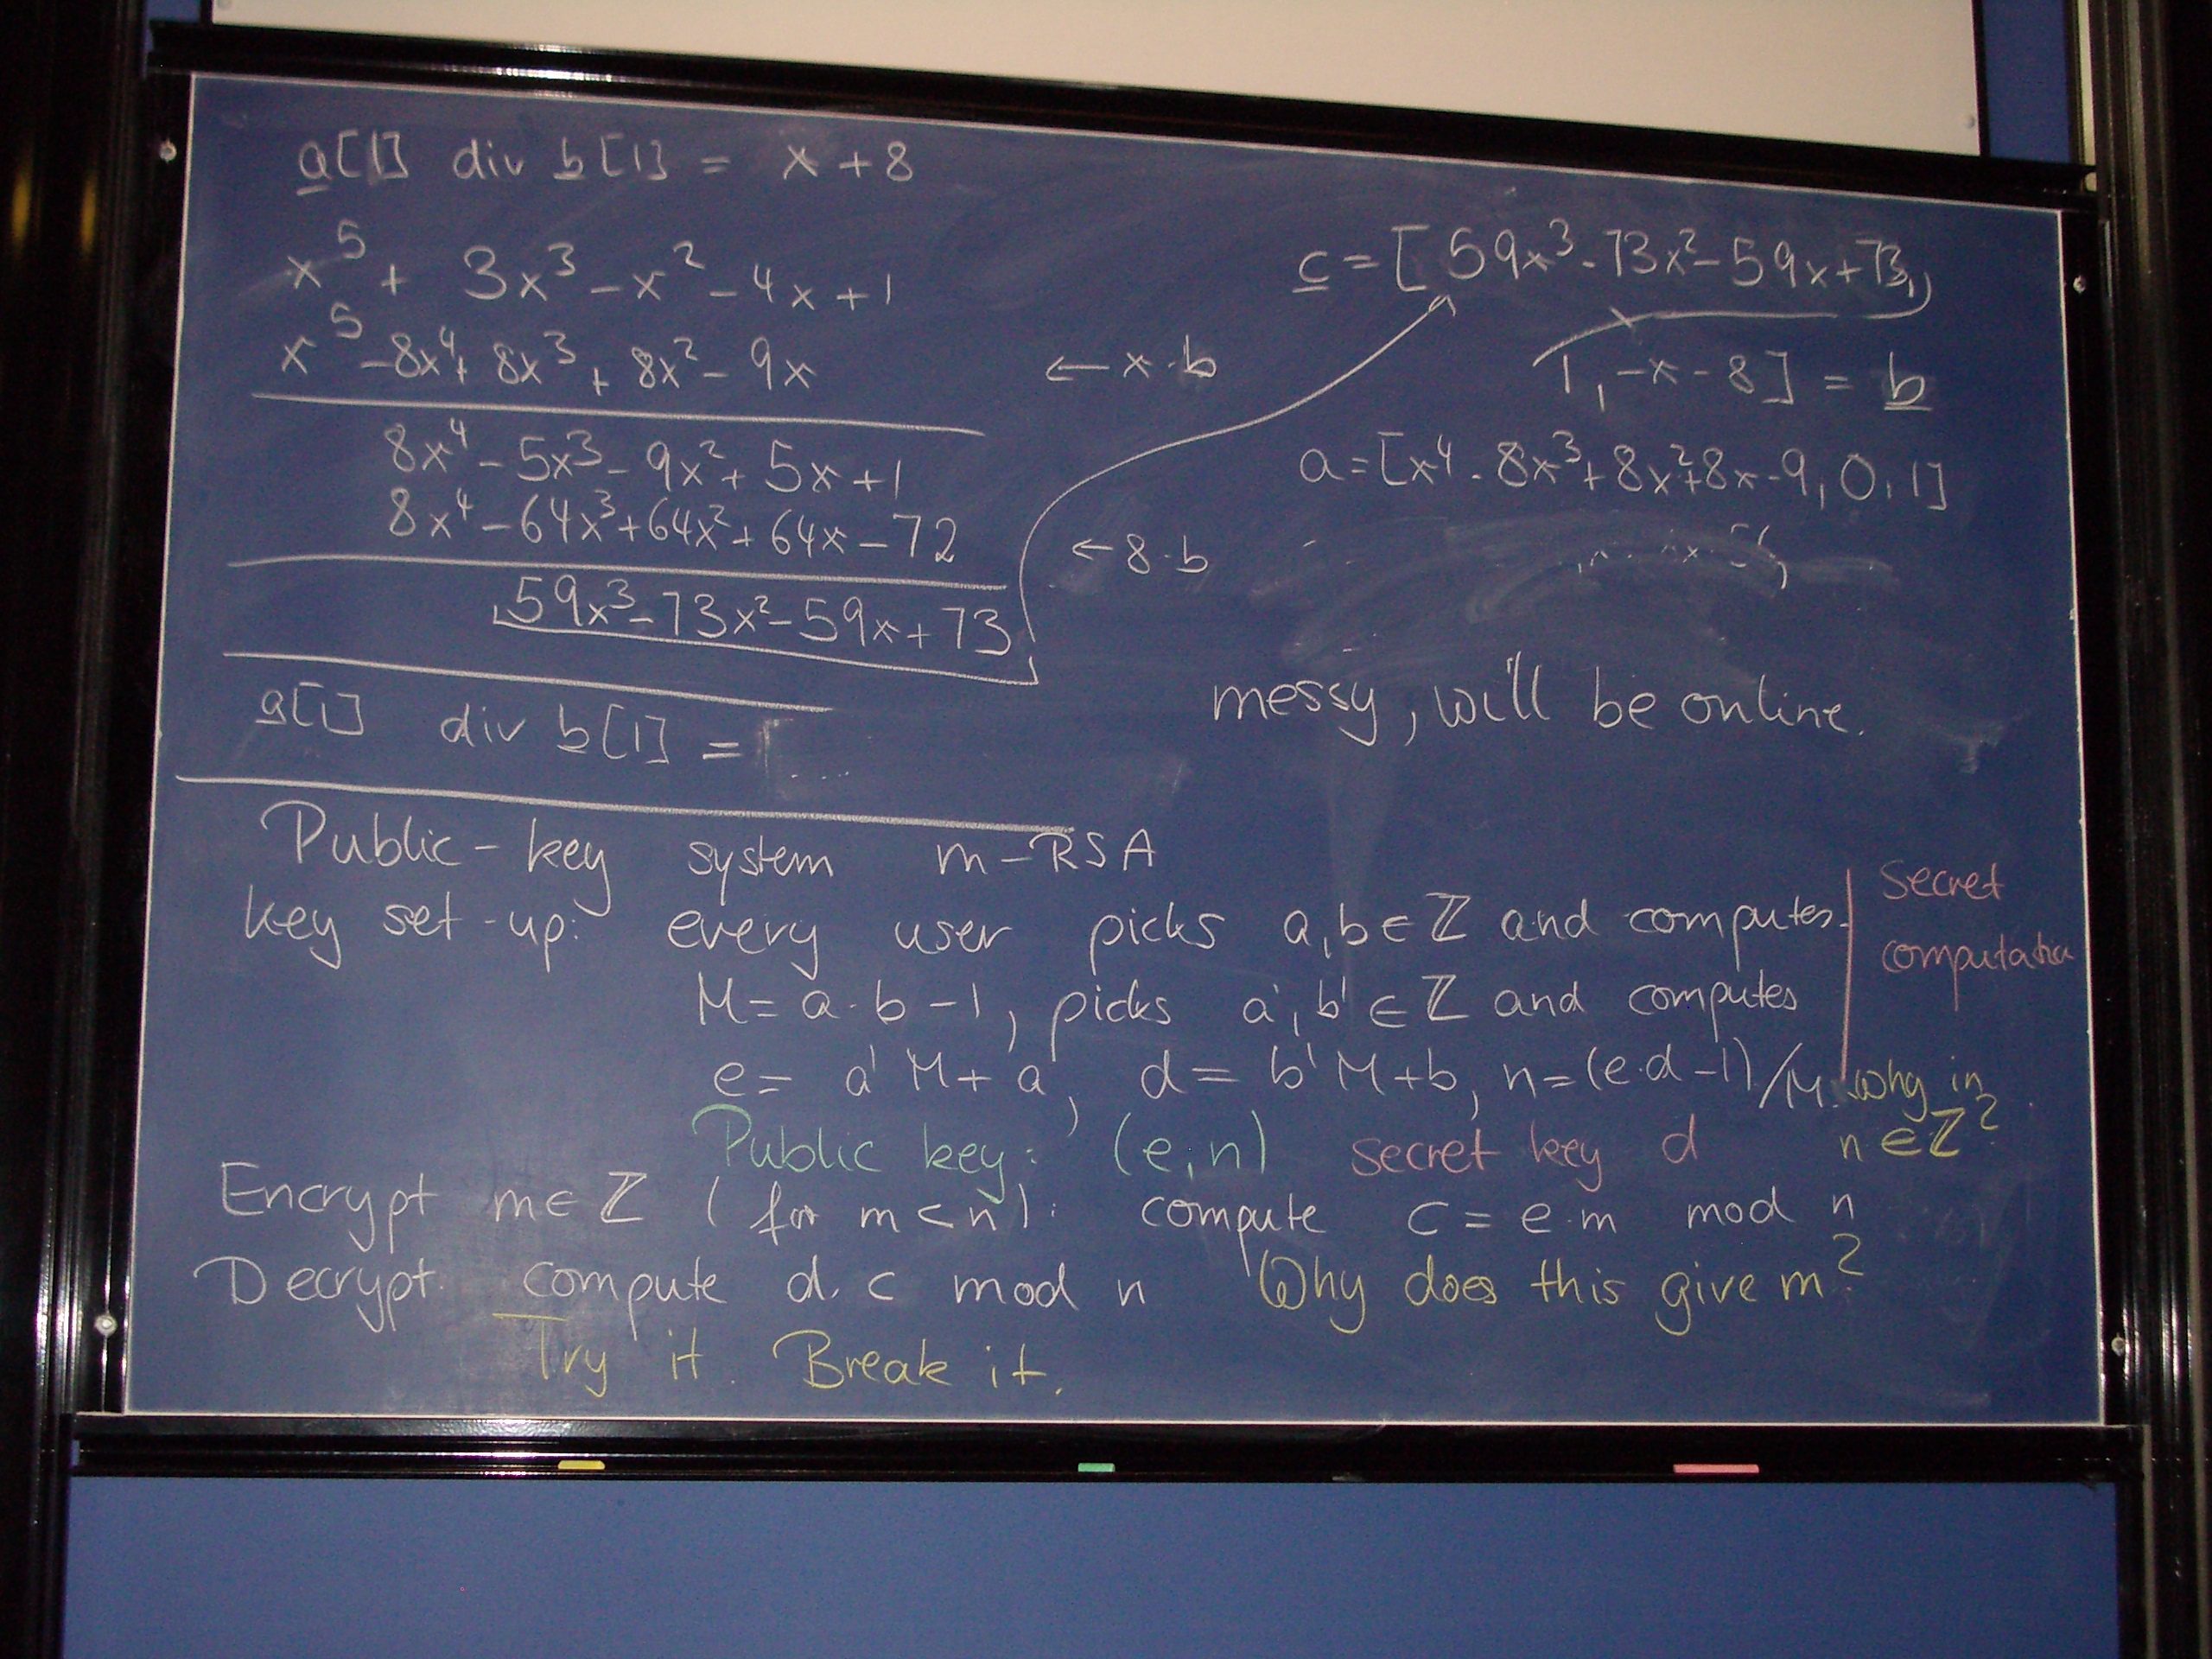 a[1] div b[1] = x + 8
x⁵ + 3x³ - x² - 4x + 1
x⁵ - 8x⁴ + 8x³ + 8x² - 9x ← x·b
8x⁴ - 5x³ - 9x² + 5x + 1
8x⁴ - 64x³ + 64x² + 64x - 72 ← 8·b
59x³ - 73x² - 59x + 73
a[1] div b[1] =
c = [59x³ - 73x² - 59x + 73,
1, -x - 8] = b
a = [x⁴ - 8x³ + 8x² + 8x - 9, 0, 1]
messy, will be online.
Public-key system m-RSA
key set-up: every user picks a, b ∈ ℤ and computes
M = a·b - 1, picks a', b' ∈ ℤ and computes
e = a'M + a, d = b'M + b, n = (e·d - 1)/M
secret
computation
why in
n ∈ ℤ?
Public key: (e, n) secret key d
Encrypt m ∈ ℤ (for m < n): compute c = e·m mod n
Decrypt: compute d·c mod n Why does this give m?
Try it. Break it.